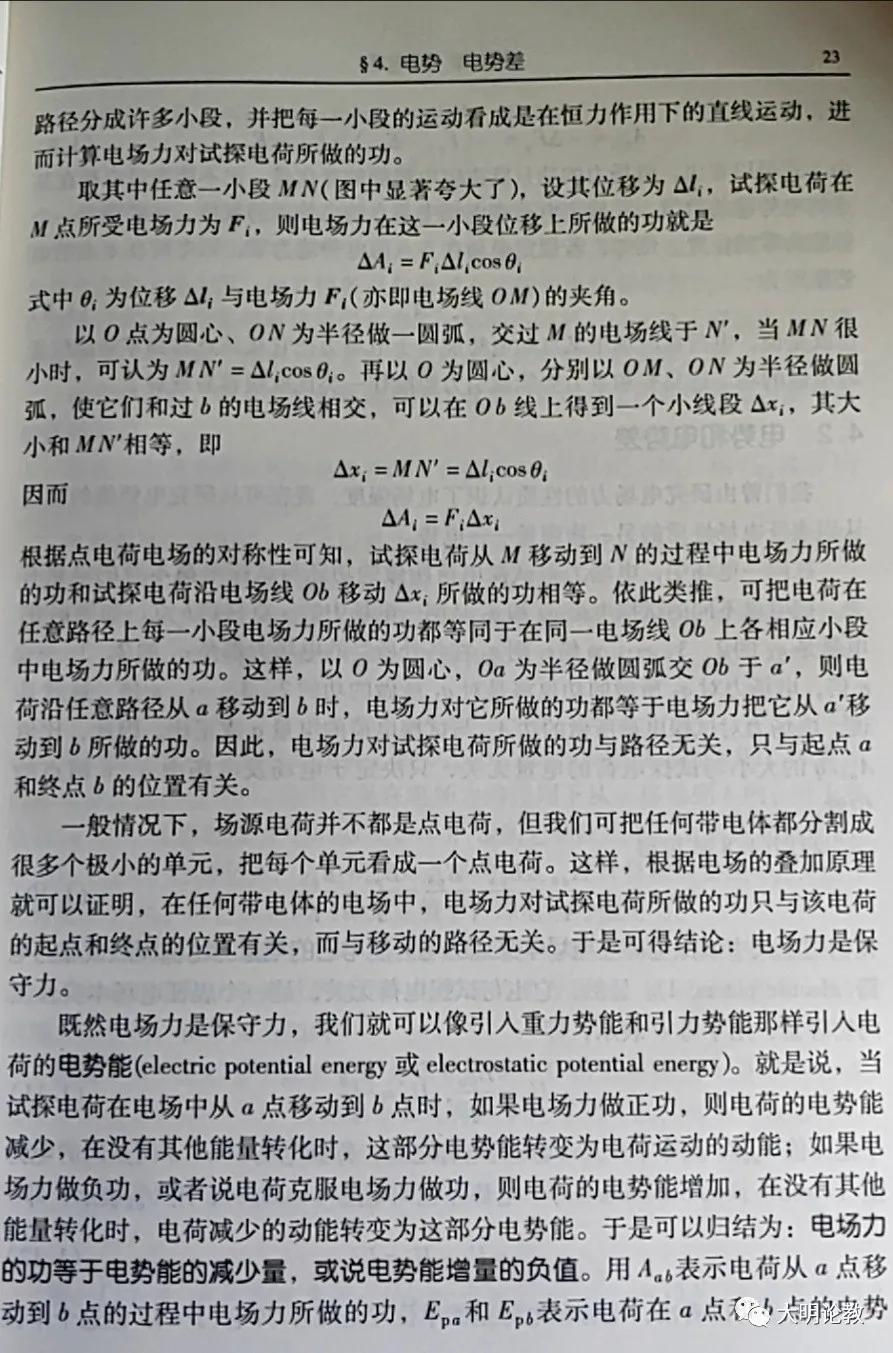 §4. 电势 电势差 23
路径分成许多小段，并把每一小段的运动看成是在恒力作用下的直线运动，进
而计算电场力对试探电荷所做的功。
取其中任意一小段 MN(图中显著夸大了)，设其位移为 Δlᵢ，试探电荷在
M 点所受电场力为 Fᵢ，则电场力在这一小段位移上所做的功就是
ΔAᵢ = FᵢΔlᵢcos θᵢ
式中 θᵢ 为位移 Δlᵢ 与电场力 Fᵢ(亦即电场线 OM)的夹角。
以 O 点为圆心、ON 为半径做一圆弧，交过 M 的电场线于 N′，当 MN 很
小时，可认为 MN′ = Δlᵢcos θᵢ。再以 O 为圆心，分别以 OM、ON 为半径做圆
弧，使它们和过 b 的电场线相交，可以在 Ob 线上得到一个小线段 Δxᵢ，其大
小和 MN′相等，即
Δxᵢ = MN′ = Δlᵢcos θᵢ
因而
ΔAᵢ = FᵢΔxᵢ
根据点电荷电场的对称性可知，试探电荷从 M 移动到 N 的过程中电场力所做
的功和试探电荷沿电场线 Ob 移动 Δxᵢ 所做的功相等。依此类推，可把电荷在
任意路径上每一小段电场力所做的功都等同于在同一电场线 Ob 上各相应小段
中电场力所做的功。这样，以 O 为圆心，Oa 为半径做圆弧交 Ob 于 a′，则电
荷沿任意路径从 a 移动到 b 时，电场力对它所做的功都等于电场力把它从 a′移
动到 b 所做的功。因此，电场力对试探电荷所做的功与路径无关，只与起点 a
和终点 b 的位置有关。
一般情况下，场源电荷并不都是点电荷，但我们可把任何带电体都分割成
很多个极小的单元，把每个单元看成一个点电荷。这样，根据电场的叠加原理
就可以证明，在任何带电体的电场中，电场力对试探电荷所做的功只与该电荷
的起点和终点的位置有关，而与移动的路径无关。于是可得结论：电场力是保
守力。
既然电场力是保守力，我们就可以像引入重力势能和引力势能那样引入电
荷的电势能(electric potential energy 或 electrostatic potential energy)。就是说，当
试探电荷在电场中从 a 点移动到 b 点时，如果电场力做正功，则电荷的电势能
减少，在没有其他能量转化时，这部分电势能转变为电荷运动的动能；如果电
场力做负功，或者说电荷克服电场力做功，则电荷的电势能增加，在没有其他
能量转化时，电荷减少的动能转变为这部分电势能。于是可以归结为：电场力
的功等于电势能的减少量，或说电势能增量的负值。用 Aab表示电荷从 a 点移
动到 b 点的过程中电场力所做的功，Epa和 Epb表示电荷在 a 点和 b 点的电势
大明论教